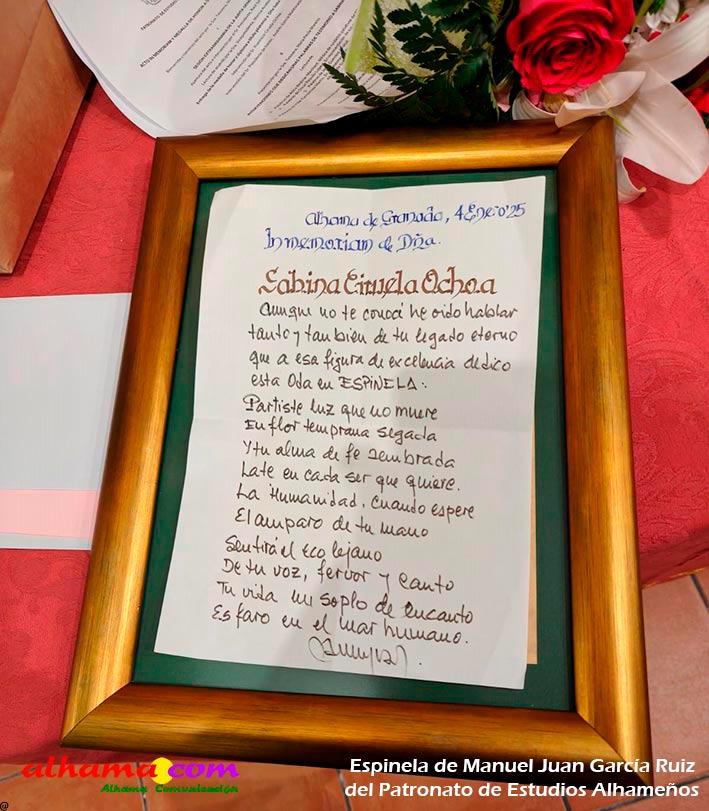 PATRONATO DE ESTUDIOS
ACTO IN MEMORIAM Y MEDALLA DE
Alhama de Granada, 4 Enero'25
In memorian de Dña.
Sabina Ciruela Ochoa
Aunque no te conocí he oido hablar
tanto y tambien de tu legado eterno
que a esa figura de excelencia dedico
esta Oda en ESPINELA:
Partiste luz que no muere
En flor temprana segada
Y tu alma de fe sembrada
Late en cada ser que quiere.
La Humanidad, cuando espere
El amparo de tu mano
Sentirá el Eco lejano
De tu voz, fervor y canto
Tu vida un soplo de encanto
Es faro en el mar humano.
alhama.com
Alhama Comunicación
Espinela de Manuel Juan García Ruiz
del Patronato de Estudios Alhameños
@